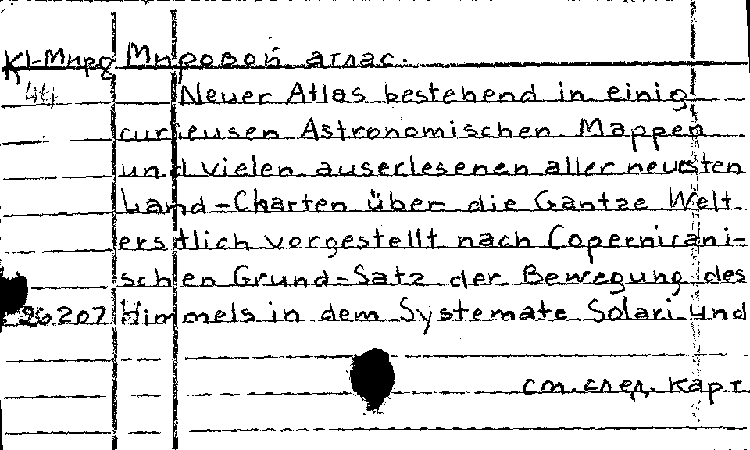 КІ-Мирд Мировой атлас.
44 Neuer Atlas bestehend in einig
curieusen Astronomischen Mappen
und vielen auserlesenen aller neuesten
Land-Charten über die Gantze Welt
erstlich vorgestellt nach Copernicani-
schen Grund-Satz der Bewegung des
26207 Himmels in dem Systemate Solari und
см. след. карт